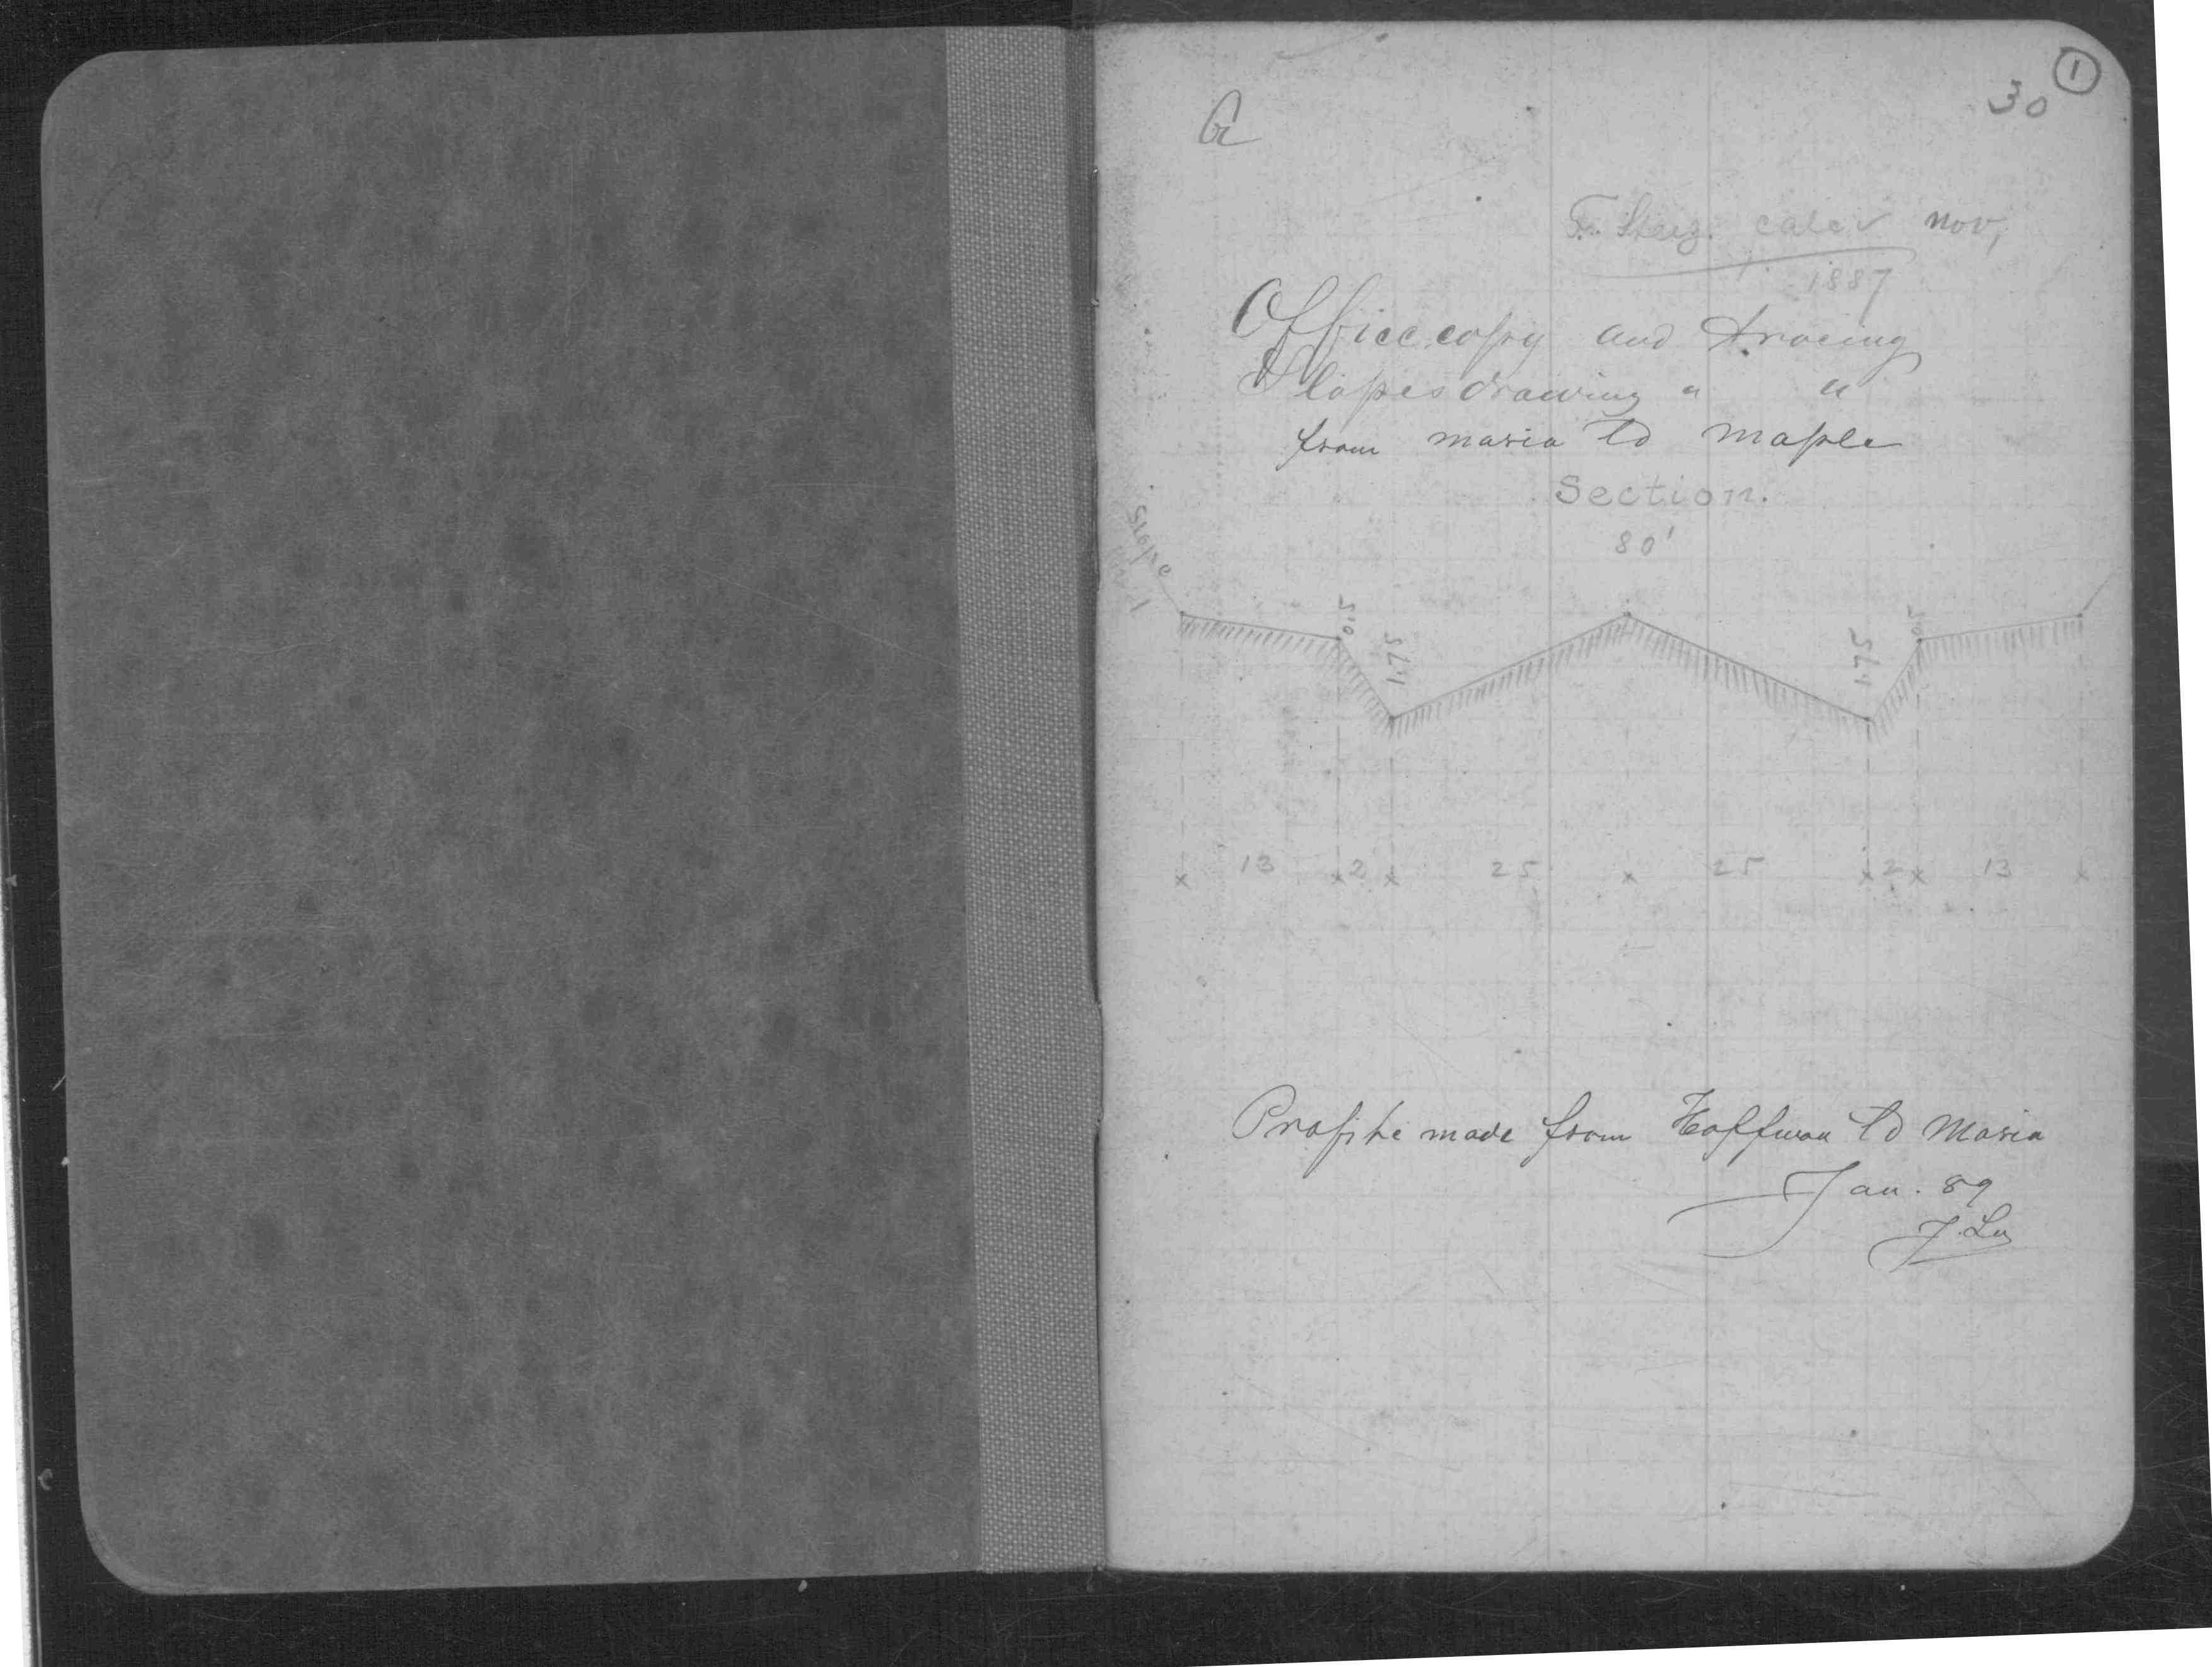 1
30
G
F. Steig. calc. nov,
1887
Office copy and tracing
Slopes drawing " "
from maria to maple
Section.
80'
slope 1
0.5 1.75 1.75 0.5
13 2 25 25 2 13
Profile made from Hoffman to Maria
Jan. 89